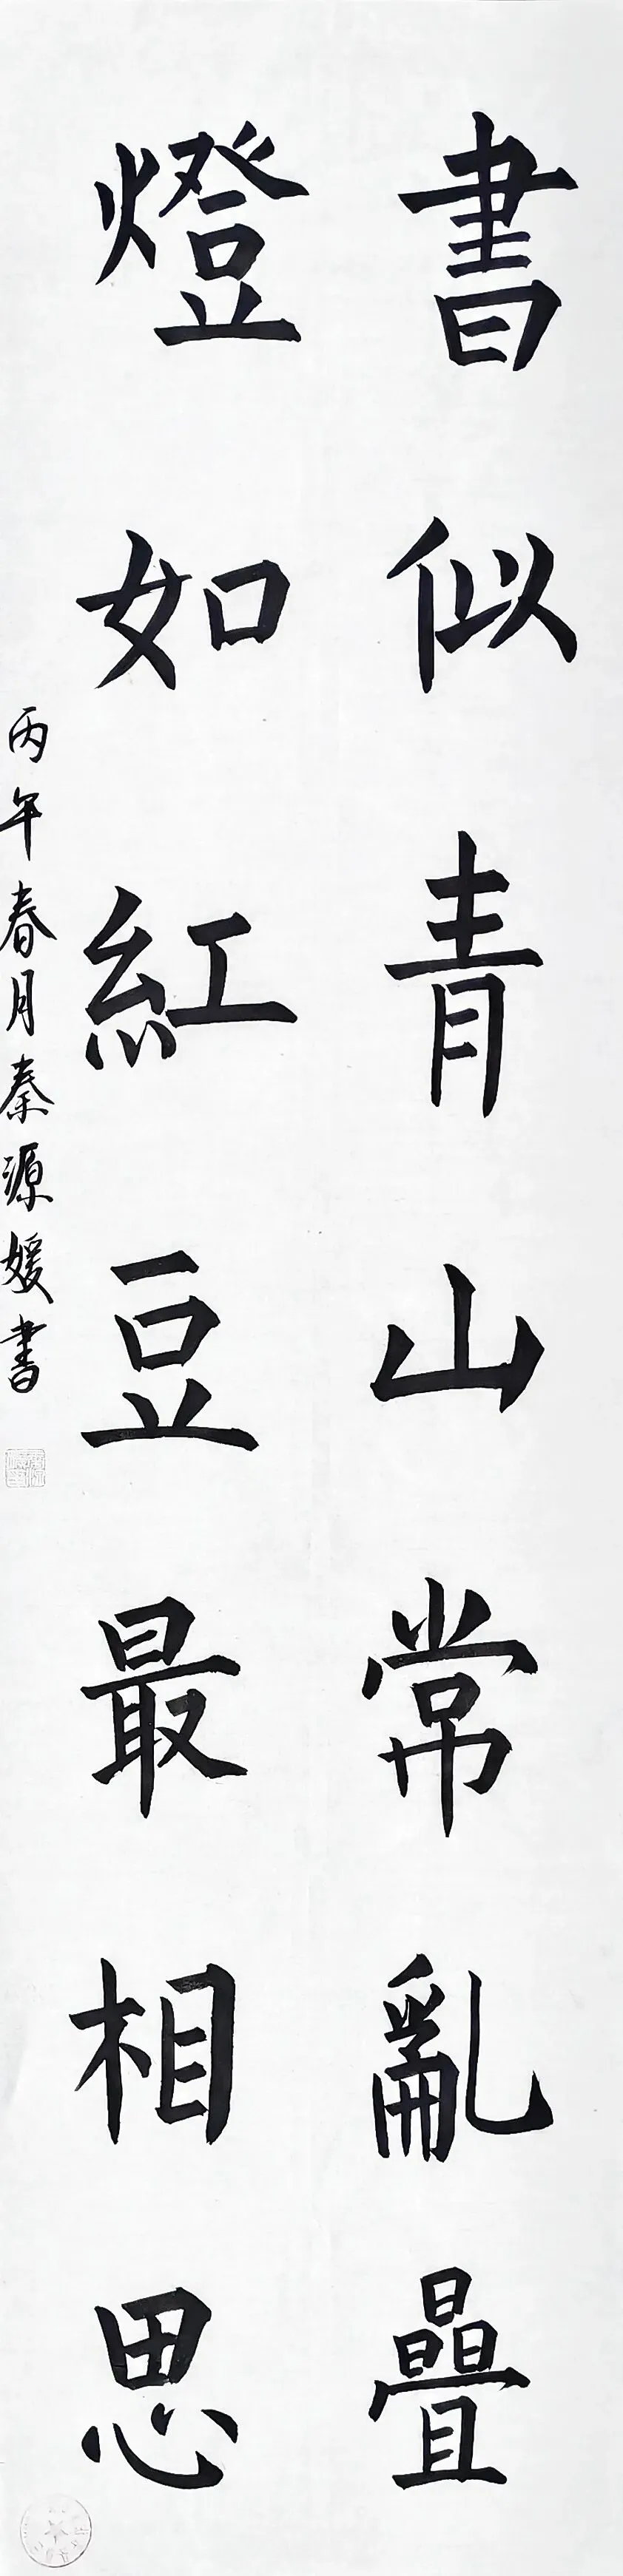 書似青山常亂疊
燈如紅豆最相思
丙午春月秦源媛書